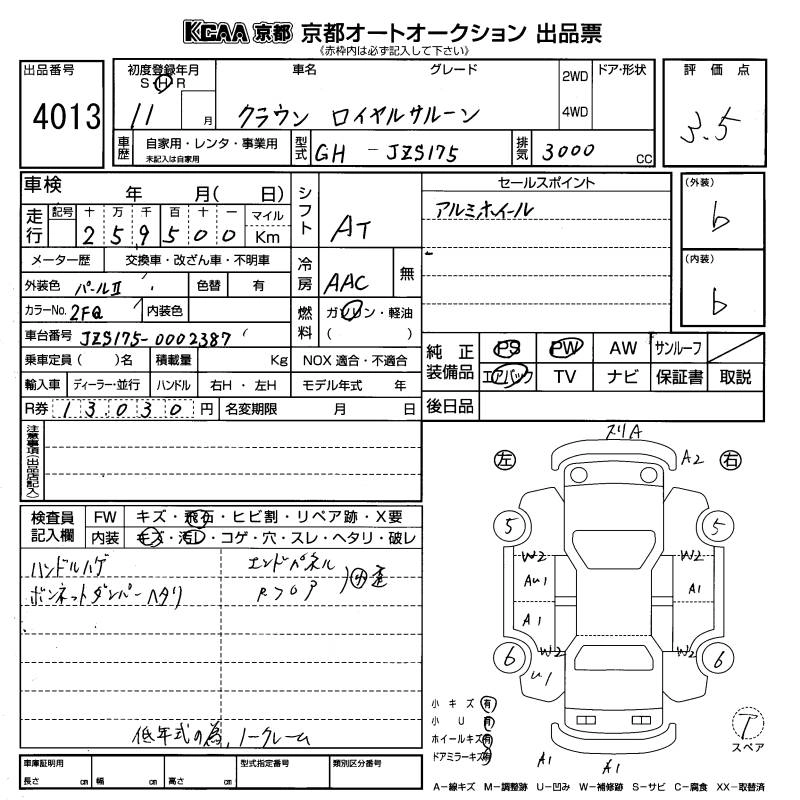 KCAA 京都 京都オートオークション 出品票
《赤枠内は必ず記入して下さい》
出品番号
4013
初度登録年月
S H R
11 月
車名 グレード
クラウン ロイヤルサルーン
2WD
4WD
ドア・形状
評価点
3.5
車歴 自家用・レンタ・事業用
未記入は自家用
型式 GH - JZS175
排気 3000 CC
車検 年 月( 日)
走行 記号 十 万 千 百 十 一 マイル
2 5 9 5 0 0 Km
メーター歴 交換車・改ざん車・不明車
外装色 パールⅡ 色替 有
カラーNo. 2FQ 内装色
車台番号 JZS175-0002387
乗車定員( )名 積載量 Kg
輸入車 ディーラー・並行 ハンドル 右H・左H
R券 13030円 名変期限 月 日
シフト AT
冷房 AAC 無
燃料 ガソリン・軽油
( )
NOX 適合・不適合
モデル年式 年
セールスポイント
アルミホイール
(外装)
b
(内装)
b
純正装備品 PS PW AW サンルーフ
エアバック TV ナビ 保証書 取説
後日品
注意事項(出品店記入)
検査員記入欄
FW キズ・飛石・ヒビ割・リペア跡・X要
内装 キズ・汚レ・コゲ・穴・スレ・ヘタリ・破レ
ハンドルハゲ
ボンネットダンパーヘタリ
エンドパネル
Rフロア
小 歪
低年式の為、ノークレーム
車庫証明用
長さ cm 幅 cm 高さ cm
型式指定番号
類別区分番号
スリA
左 A2 右
5 5
W2 W2
AU1 A1
A1
W2 W2
6 6
U1
小キズ 有
小U 有
ホイールキズ 有
ドアミラーキズ 有
A1 A1
T
スペア
A-線キズ M-調整跡 U-凹み W-補修跡 S-サビ C-腐食 XX-取替済